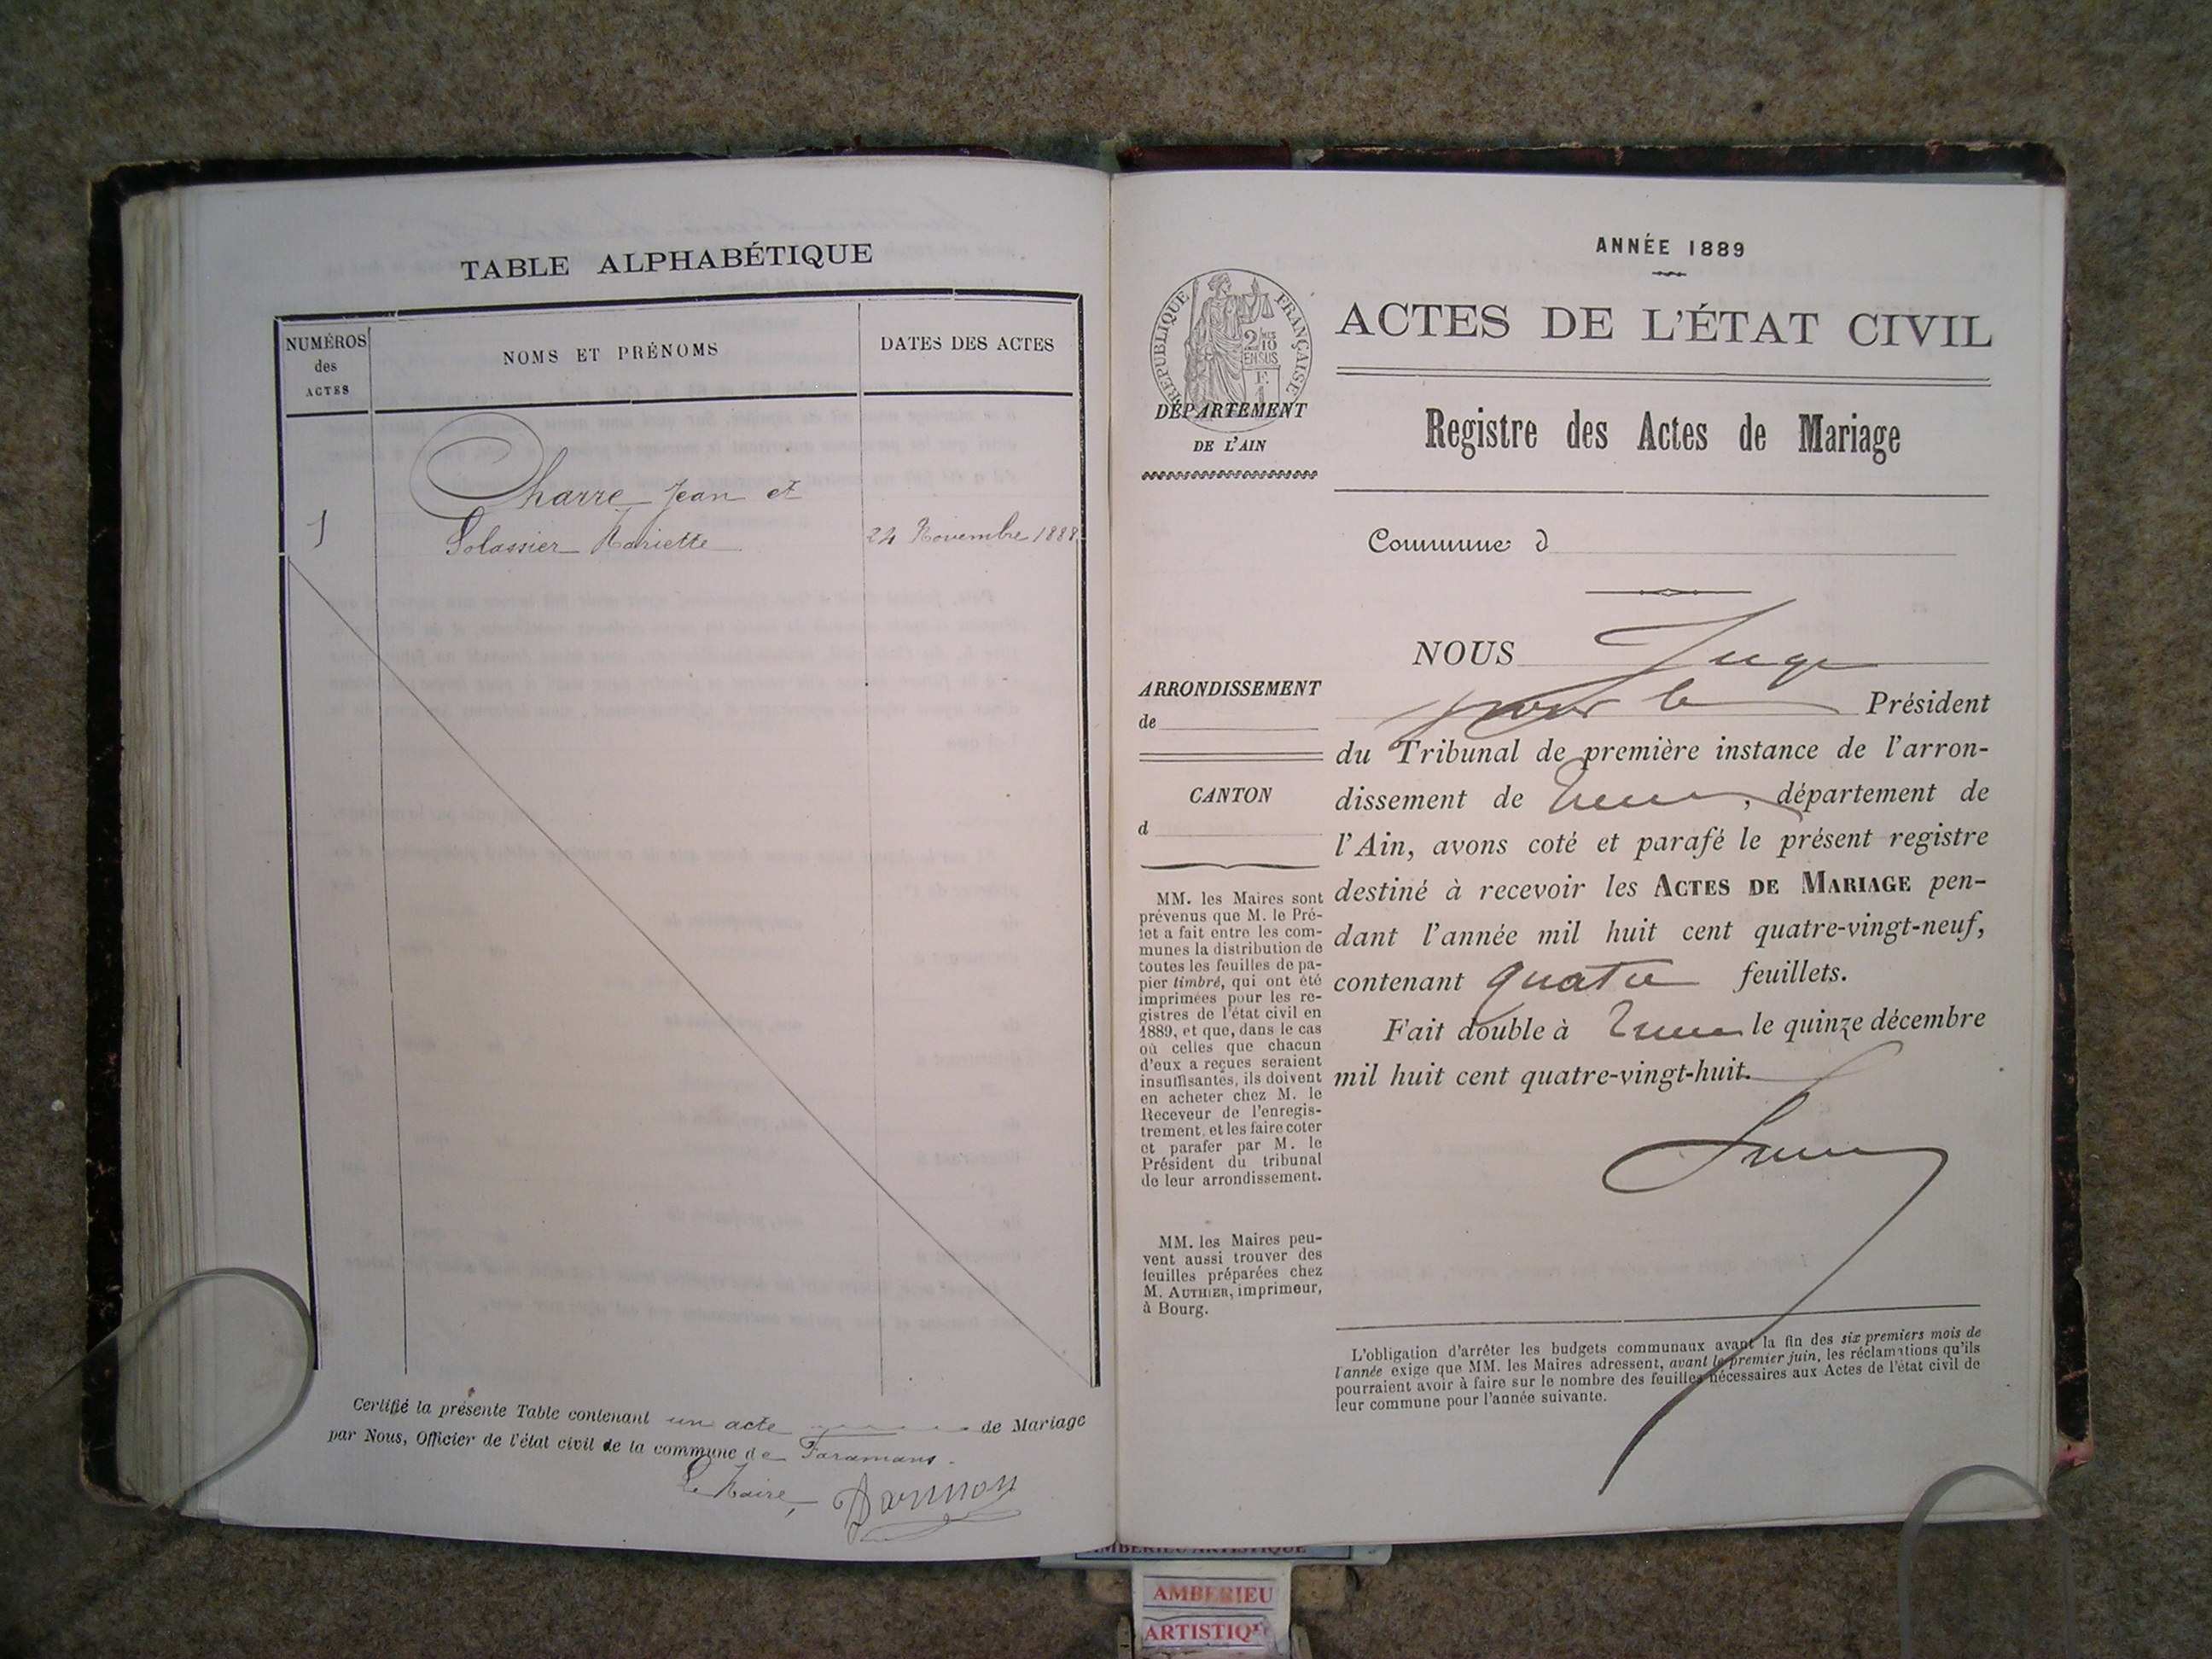 TABLE ALPHABÉTIQUE
NUMÉROS
des
ACTES
NOMS ET PRÉNOMS
DATES DES ACTES
Charre Jean et
1
Solassier Mariette
24 Novembre 1888
Certifié la présente Table contenant un acte de Mariage
par Nous, Officier de l'état civil de la commune de Faramans.
Le Maire,
ANNÉE 1889
ACTES DE L'ÉTAT CIVIL
RÉPUBLIQUE FRANÇAISE
2/10
EN SUS
DÉPARTEMENT
DE L'AIN
Registre des Actes de Mariage
Commune d
ARRONDISSEMENT
de
CANTON
d
MM. les Maires sont
prévenus que M. le Pré-
fet a fait entre les com-
munes la distribution de
toutes les feuilles de pa-
pier timbré, qui ont été
imprimées pour les re-
gistres de l'état civil en
1889, et que, dans le cas
où celles que chacun
d'eux a reçues seraient
insuffisantes, ils doivent
en acheter chez M. le
Receveur de l'enregis-
trement, et les faire coter
et parafer par M. le
Président du tribunal
de leur arrondissement.
MM. les Maires peu-
vent aussi trouver des
feuilles préparées chez
M. AUTHIER, imprimeur,
à Bourg.
NOUS Juge
pour le Président
du Tribunal de première instance de l'arron-
dissement de , département de
l'Ain, avons coté et parafé le présent registre
destiné à recevoir les ACTES DE MARIAGE pen-
dant l'année mil huit cent quatre-vingt-neuf,
contenant quatre feuillets.
Fait double à le quinze décembre
mil huit cent quatre-vingt-huit.
L'obligation d'arrêter les budgets communaux avant la fin des six premiers mois de
l'année exige que MM. les Maires adressent, avant le premier juin, les réclamations qu'ils
pourraient avoir à faire sur le nombre des feuilles nécessaires aux Actes de l'état civil de
leur commune pour l'année suivante.
AMBERIEU ARTISTIQUE
AMBERIEU
ARTISTIQUE